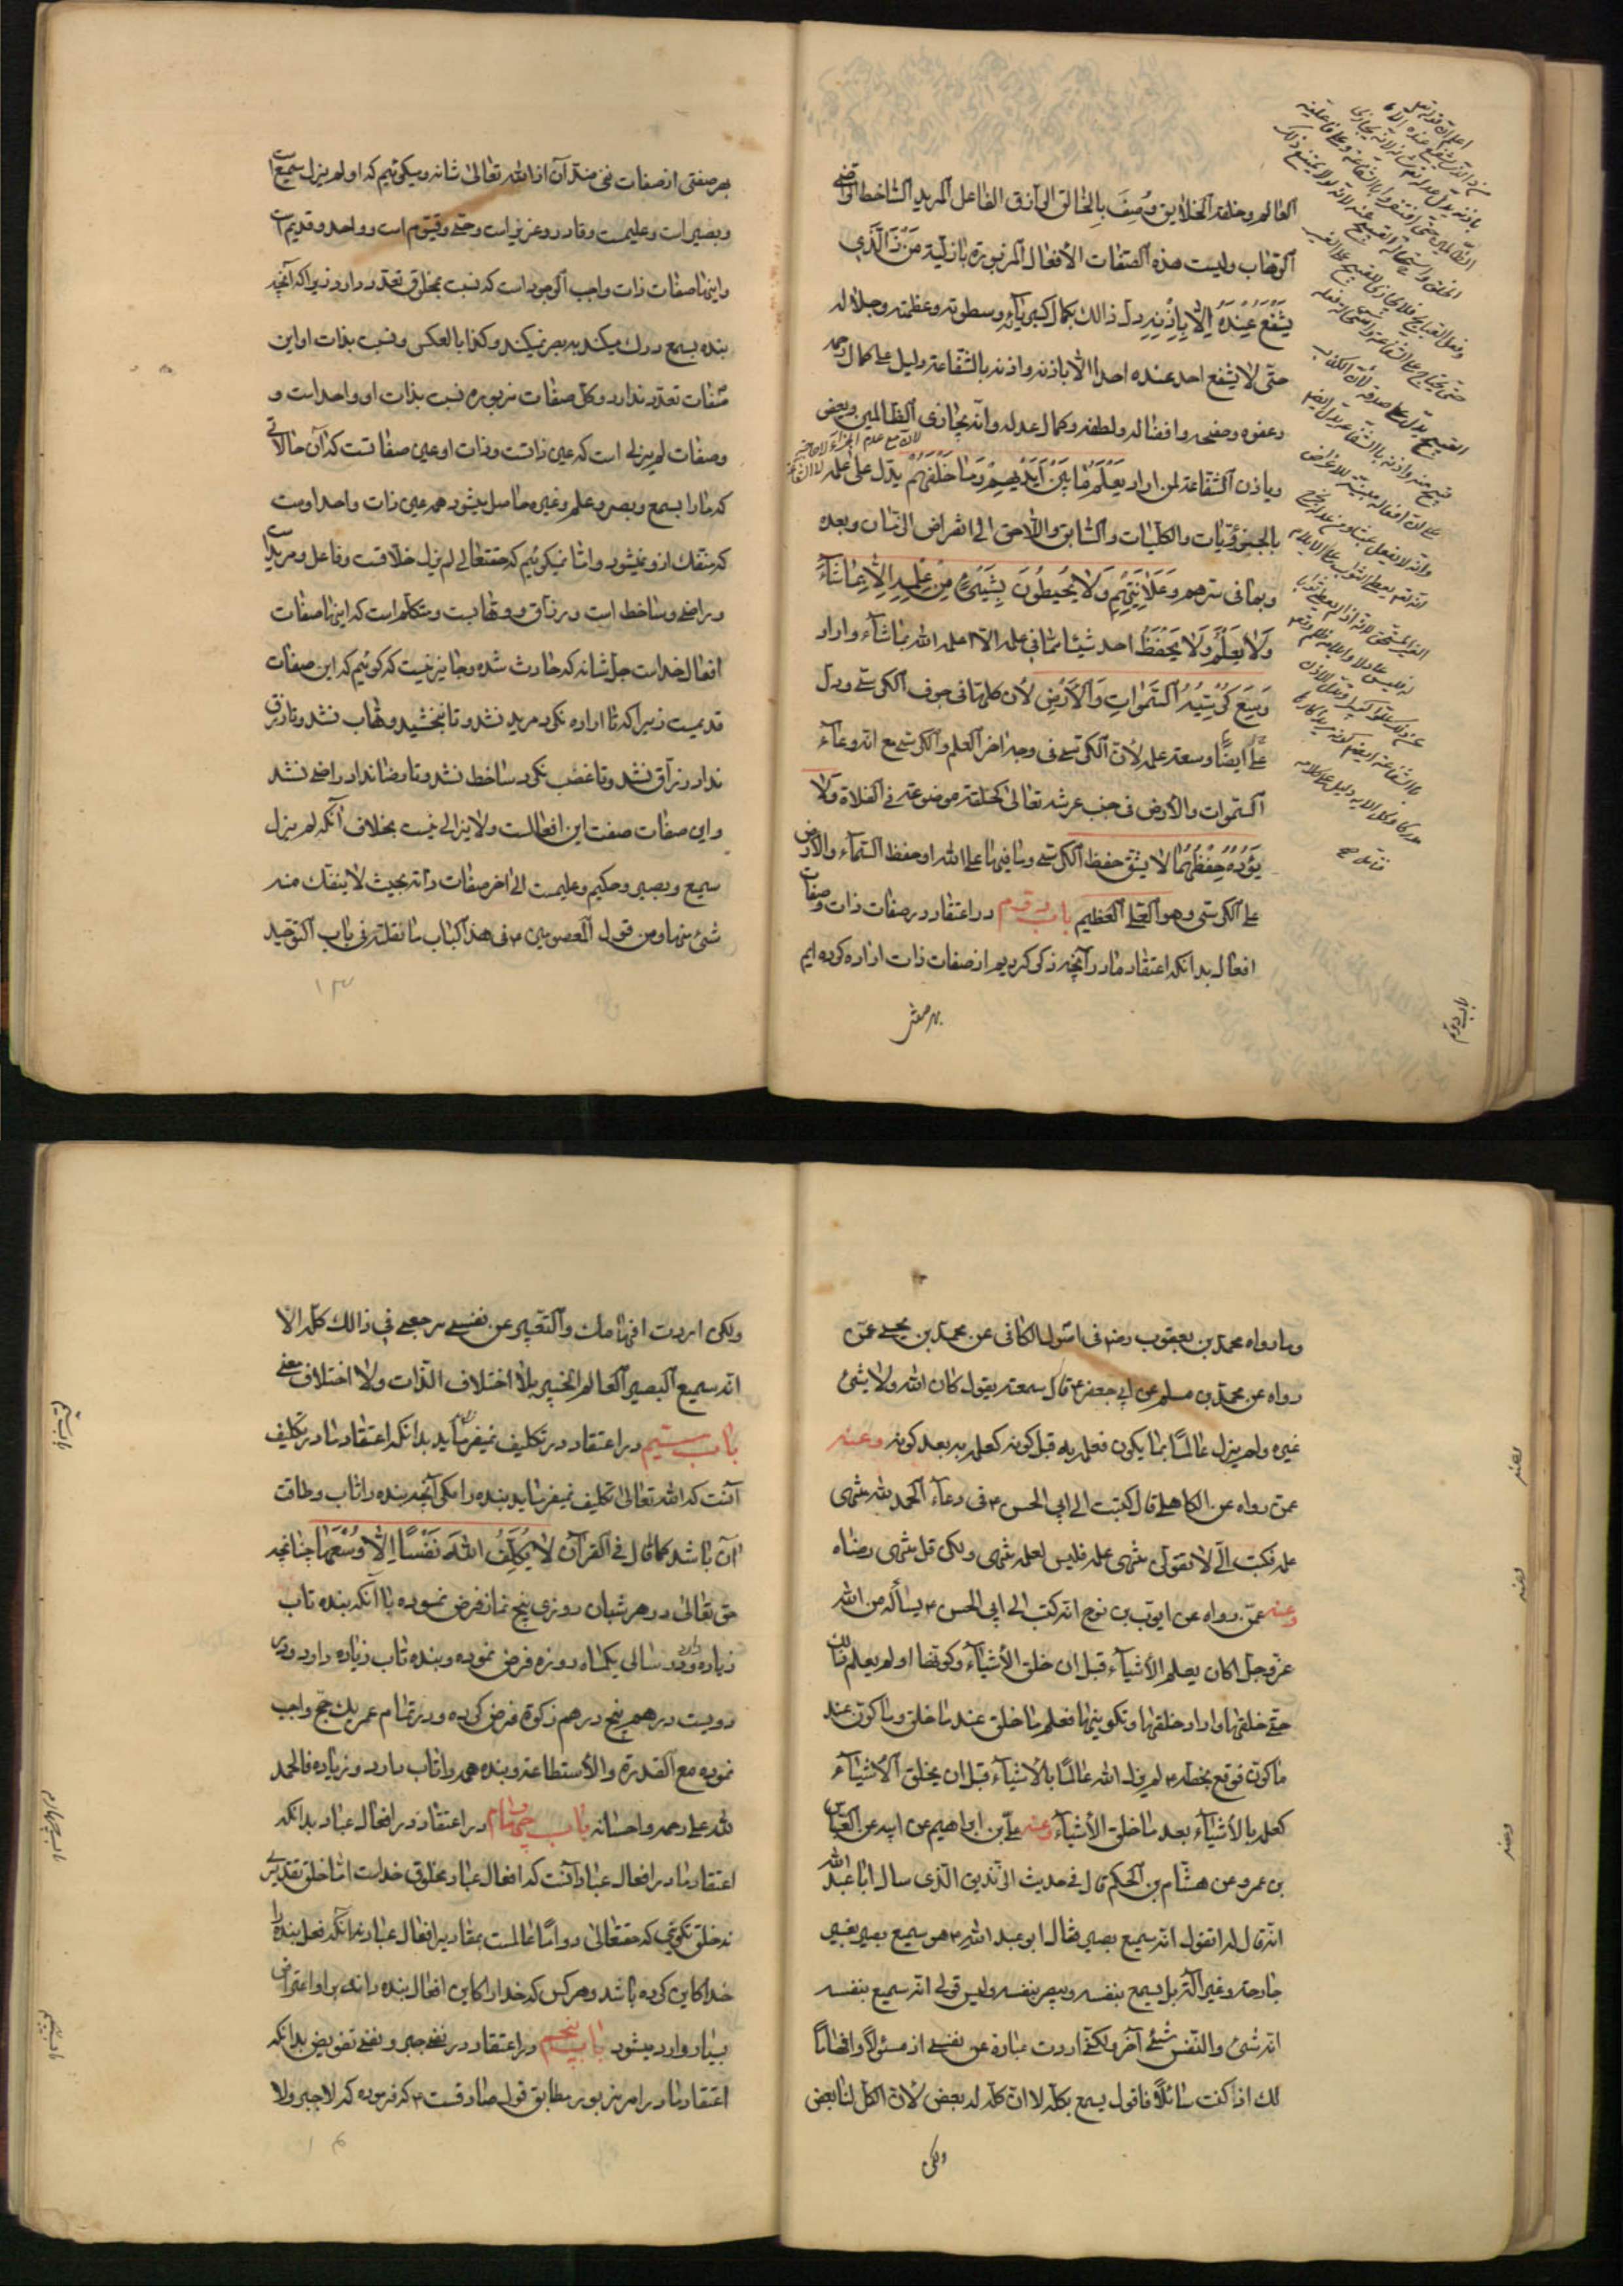 العالم وخلقه الخلایق وُصِفَ بِالخالق الرازق الفاعل المرید الساخط الراضی
الوهاب ولیست هذه الصفات الأفعال المزبورة بازلیة مَنْ ذَا الَّذی
یَشْفَعُ عِنْدَهُ اِلّا بِاِذْنِهِ دل ذالك بکمال کبریآئه وسطوته وعظمته وجلاله
حتی لا یشفع احد عنده احدا الا باذنه واذنه بالشفاعة دلیل علی کمال رحمه
وعفوه وصفحه وافضاله ولطفه وکمال عدله وانه یجازی الظالمین وبعض
ویاذن الشفاعة لمن اراد یَعْلَمُ مٰا بَیْنَ اَیْدیهِمْ وَمٰا خَلْفَهُمْ یدل علی علمه
بالجزوئیات والکلیات والسابق واللاحق الی انقراض الزمان وبعده
وبما فی سرهم وعَلانیتهم وَلا یُحیطُونَ بِشَیْءٍ مِنْ عِلْمِهِ اِلّا بِمٰا شٰآءَ
وَلا یَعْلَمُ وَلا یَحْفَظُ احد شیئا مما فی علمه الا اعلمه الله بما شآء واراد
وَسِعَ کُرْسِیُّهُ السَّمٰواتِ وَالْأَرْضَ لأن کلها فی جوف الکرسی ودل
علی ایضًا وسعة علمه لأن الکرسی فی وجه اخر العلم والکرسی مع انه وعآء
السموات والأرض فی جنب عرشه تعالی کحلقة موضوعة فی الفلاة وَلا
یَؤُدُهُ حِفْظُهُمٰا لا یثقل حفظ الکرسی وما فیها علی الله او حفظ السمآء والأرض
علی الکرسی وهو العلی العظیم باب دویم در اعتقاد در صفات ذات وصفات
افعال بدانکه اعتقاد ما در آنچه ذکر کردیم از صفات ذات اراده کرده ایم
بهر صفتی
باب دویم
بهر صفتی از صفات نفی ضد آن از الله تعالی شانه ومیگوئیم که او لم یزل سمیع است
وبصیر است وعلیمست وقادر وعزیز است وحی وقیوم است وواحد وقدیم است
واینها صفات ذات واجب الوجود است که نسبت بمخلوق تعدد دارد زیرا که آنچه
بنده بسمع درك میکند ببصر نمیکند وکذا بالعکس ونسبت بذات او این
صفات تعدد ندارد وکل صفات مزبوره نسبت بذات او واحد است و
وصفات لم یزلی است که عین ذاتست وذات او عین صفاتست که آن حالاتی
که ما را بسمع وبصر وعلم وغیره حاصل میشود همه عین ذات واحد اوست
که منفك از او نمیشود واما نمیگوئیم که حقتعالی لم یزل خلاقست وفاعل ومریدا
وراضی وساخط است ورزاق ووهابست ومتکلم است که اینها صفات
افعال خداست جل شانه که حادث شده وجایز نیست که گوئیم که این صفات
قدیمست زیرا که تا اراده نکرد مرید نشد وتا نبخشید وهاب نشد وتا رزق
نداد رزاق نشد وتا غضب نکرد ساخط نشد وتا رضا نداد راضی نشد
واین صفات صفت این افعالست ولا یزالی نیست بخلاف آنکه لم یزل
سمیع وبصیر وحکیم وعلیمست الی اخر صفات ذاته بحیث لا ینفك منه
شئ منها ومن قول المعصومین ع فی هذا الباب ما نقلته فی باب التوحید
۱۳
وما رواه محمد بن یعقوب رضه فی اصول الکافی عن محمد بن یحیی عمن
رواه عن محمد بن مسلم عن ابی جعفر ع قال سمعته یقول کان الله ولا شئ
غیره ولم یزل عالمًا بما یکون فعلمه به قبل کونه کعلمه به بعد کونه وعنه
عمن رواه عن الکاهلی قال کتبت الی ابی الحسن ع فی دعآء الحمد لله منتهی
علمه فکتب الیّ لا تقولن منتهی علمه فلیس لعلمه منتهی ولکن قل منتهی رضاه
وعنه عمن رواه عن ایوب بن نوح انه کتب الی ابی الحسن ع یسأله من الله
عز وجل اکان یعلم الأشیآء قبل ان خلق الأشیآء وکونها او لم یعلم ذالك
حتی خلقها واراد خلقها وتکوینها فعلم ما خلق عند ما خلق وما کون عند
ما کون فوقع بخطه ع لم یزل الله عالمًا بالأشیآء قبل ان یخلق الأشیآء
کعلمه بالأشیآء بعد ما خلق الأشیآء وعنه علی بن ابراهیم عن ابیه عن العباس
بن عمرو عن هشام بن الحکم قال فی حدیث الزندیق الذی سال ابا عبد الله
انه قال له اتقول انه سمیع بصیر فقال ابو عبد الله ع هو سمیع بصیر بغیر
جارحة وغیر آلة بل یسمع بنفسه ویبصر بنفسه ولیس قولی انه سمیع بنفسه
انه شئ والنفس شئ آخر ولکنی اردت عبارة عن نفسی اذ مسئولاً وافهامًا
لك اذ کنت سائلاً فاقول یسمع بکله لا ان کله له بعض لأن الکل لنا بعض
ولکن
وعنه
وعنه
وعنه
ولکن اردت افهامك والتعبیر عن نفسی مرجعی فی ذالك کله الا
انه سمیع البصیر العالم الخبیر بلا اختلاف الذات ولا اختلاف معنی
باب سیم در اعتقاد در تکلیف نمیفرماید بدانکه اعتقاد ما در تکلیف
آنست که الله تعالی تکلیف نمیفرماید بنده را مگر آنچه بنده را تاب وطاقت
آن باشد کما قال فی القرآن لا یُکَلِّفُ اللّٰهُ نَفْسًا اِلّا وُسْعَهٰا چنانچه
حق تعالی در هر شبان روزی پنج نماز فرض نموده با آنکه بنده تاب
زیاده دارد ودر سالی یکماه روزه فرض نموده وبنده تاب زیاده دارد ودر
دویست درهم پنج درهم زکوة فرض کرده ودر تمام عمر یك حج واجب
نموده مع القدرة والأستطاعة وبنده همه را تاب دارد وزیاده فالحمد
لله علی رحمه واحسانه باب چهارم در اعتقاد در افعال عباد بدانکه
اعتقاد ما در افعال عباد آنست که افعال عباد مخلوق خداست اما خلق تقدیری
نه خلق تکوینی که حقتعالی دوامًا عالمست بمقادیر افعال عباد نه آنکه فعل بنده را
خدا کاین کرده باشد وهر کس که خدا را کاین افعال بنده داند بر او اعتراض
بسیار وارد میشود باب پنجم در اعتقاد در نفی جبر ونفی تفویض بدانکه
اعتقاد ما در امر مزبور مطابق قول صادقست ع که فرموده که لا جبر ولا
باب سیم
باب چهارم
باب پنجم
۱۴